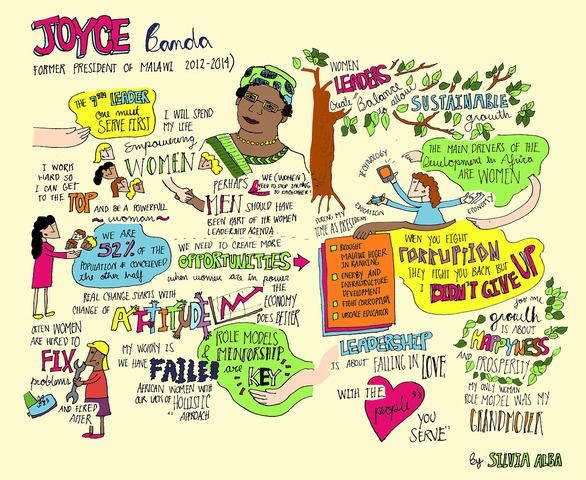 JOYCE Banda
FORMER PRESIDENT OF MALAWI 2012-2014)
THE LEADER
one must
SERVE FIRST
I WILL SPEND
MY LIFE
Empowering
WOMEN
I WORK
HARD SO
I CAN GET
TO THE
TOP
AND BE A POWERFULL
woman
PERHAPS
MEN SHOULD HAVE
BEEN PART OF MY WOMEN
LEADERSHIP AGENDA
WE (WOMEN)
NEED TO STOP TALKING
TO EACHOTHER!
WE ARE
52% OF THE
POPULATION & CONCEIVED
the other half
WE NEED TO CREATE MORE
OPPORTUNITIES
when women are in power
THE
ECONOMY
DOES BETTER
REAL CHANGE STARTS WITH
CHANGE OF ATTITUDE
OFTEN WOMEN
ARE HIRED TO
FIX
problems
AND FIRED
AFTER
MY WORRY IS
WE HAVE FAILED
AFRICAN WOMEN WITH
OUR LACK OF HOLISTIC
APPROACH
ROLE MODELS
& MENTORSHIP
are KEY
WOMEN
LEADERS
Create Balance
to allow
SUSTAINABLE
growth
THE MAIN DRIVERS OF THE
Development in Africa
ARE WOMEN
TECHNOLOGY
EDUCATION
ECONOMY
DURING MY
TIME AS PRESIDENT
BROUGHT
MALAWI HIGER
IN RANKING
ENERGY AND
INFRASTRUCTURE
DEVELOPMENT
FIGHT CORRUPTION
UPSCALE EDUCATION
WEN YOU FIGHT
CORRUPTION
THEY FIGHT YOU BACK BUT
I DIDN'T GIVE UP
for me
growth
IS ABOUT
HAPPYNESS
AND PROSPERITY
LEADERSHIP
IS ABOUT FALLING IN LOVE
WITH THE
people
YOU
SERVE"
MY ONLY WOMAN
ROLE MODEL WAS MY
GRANDMOTHER
by SILVIA ALBA